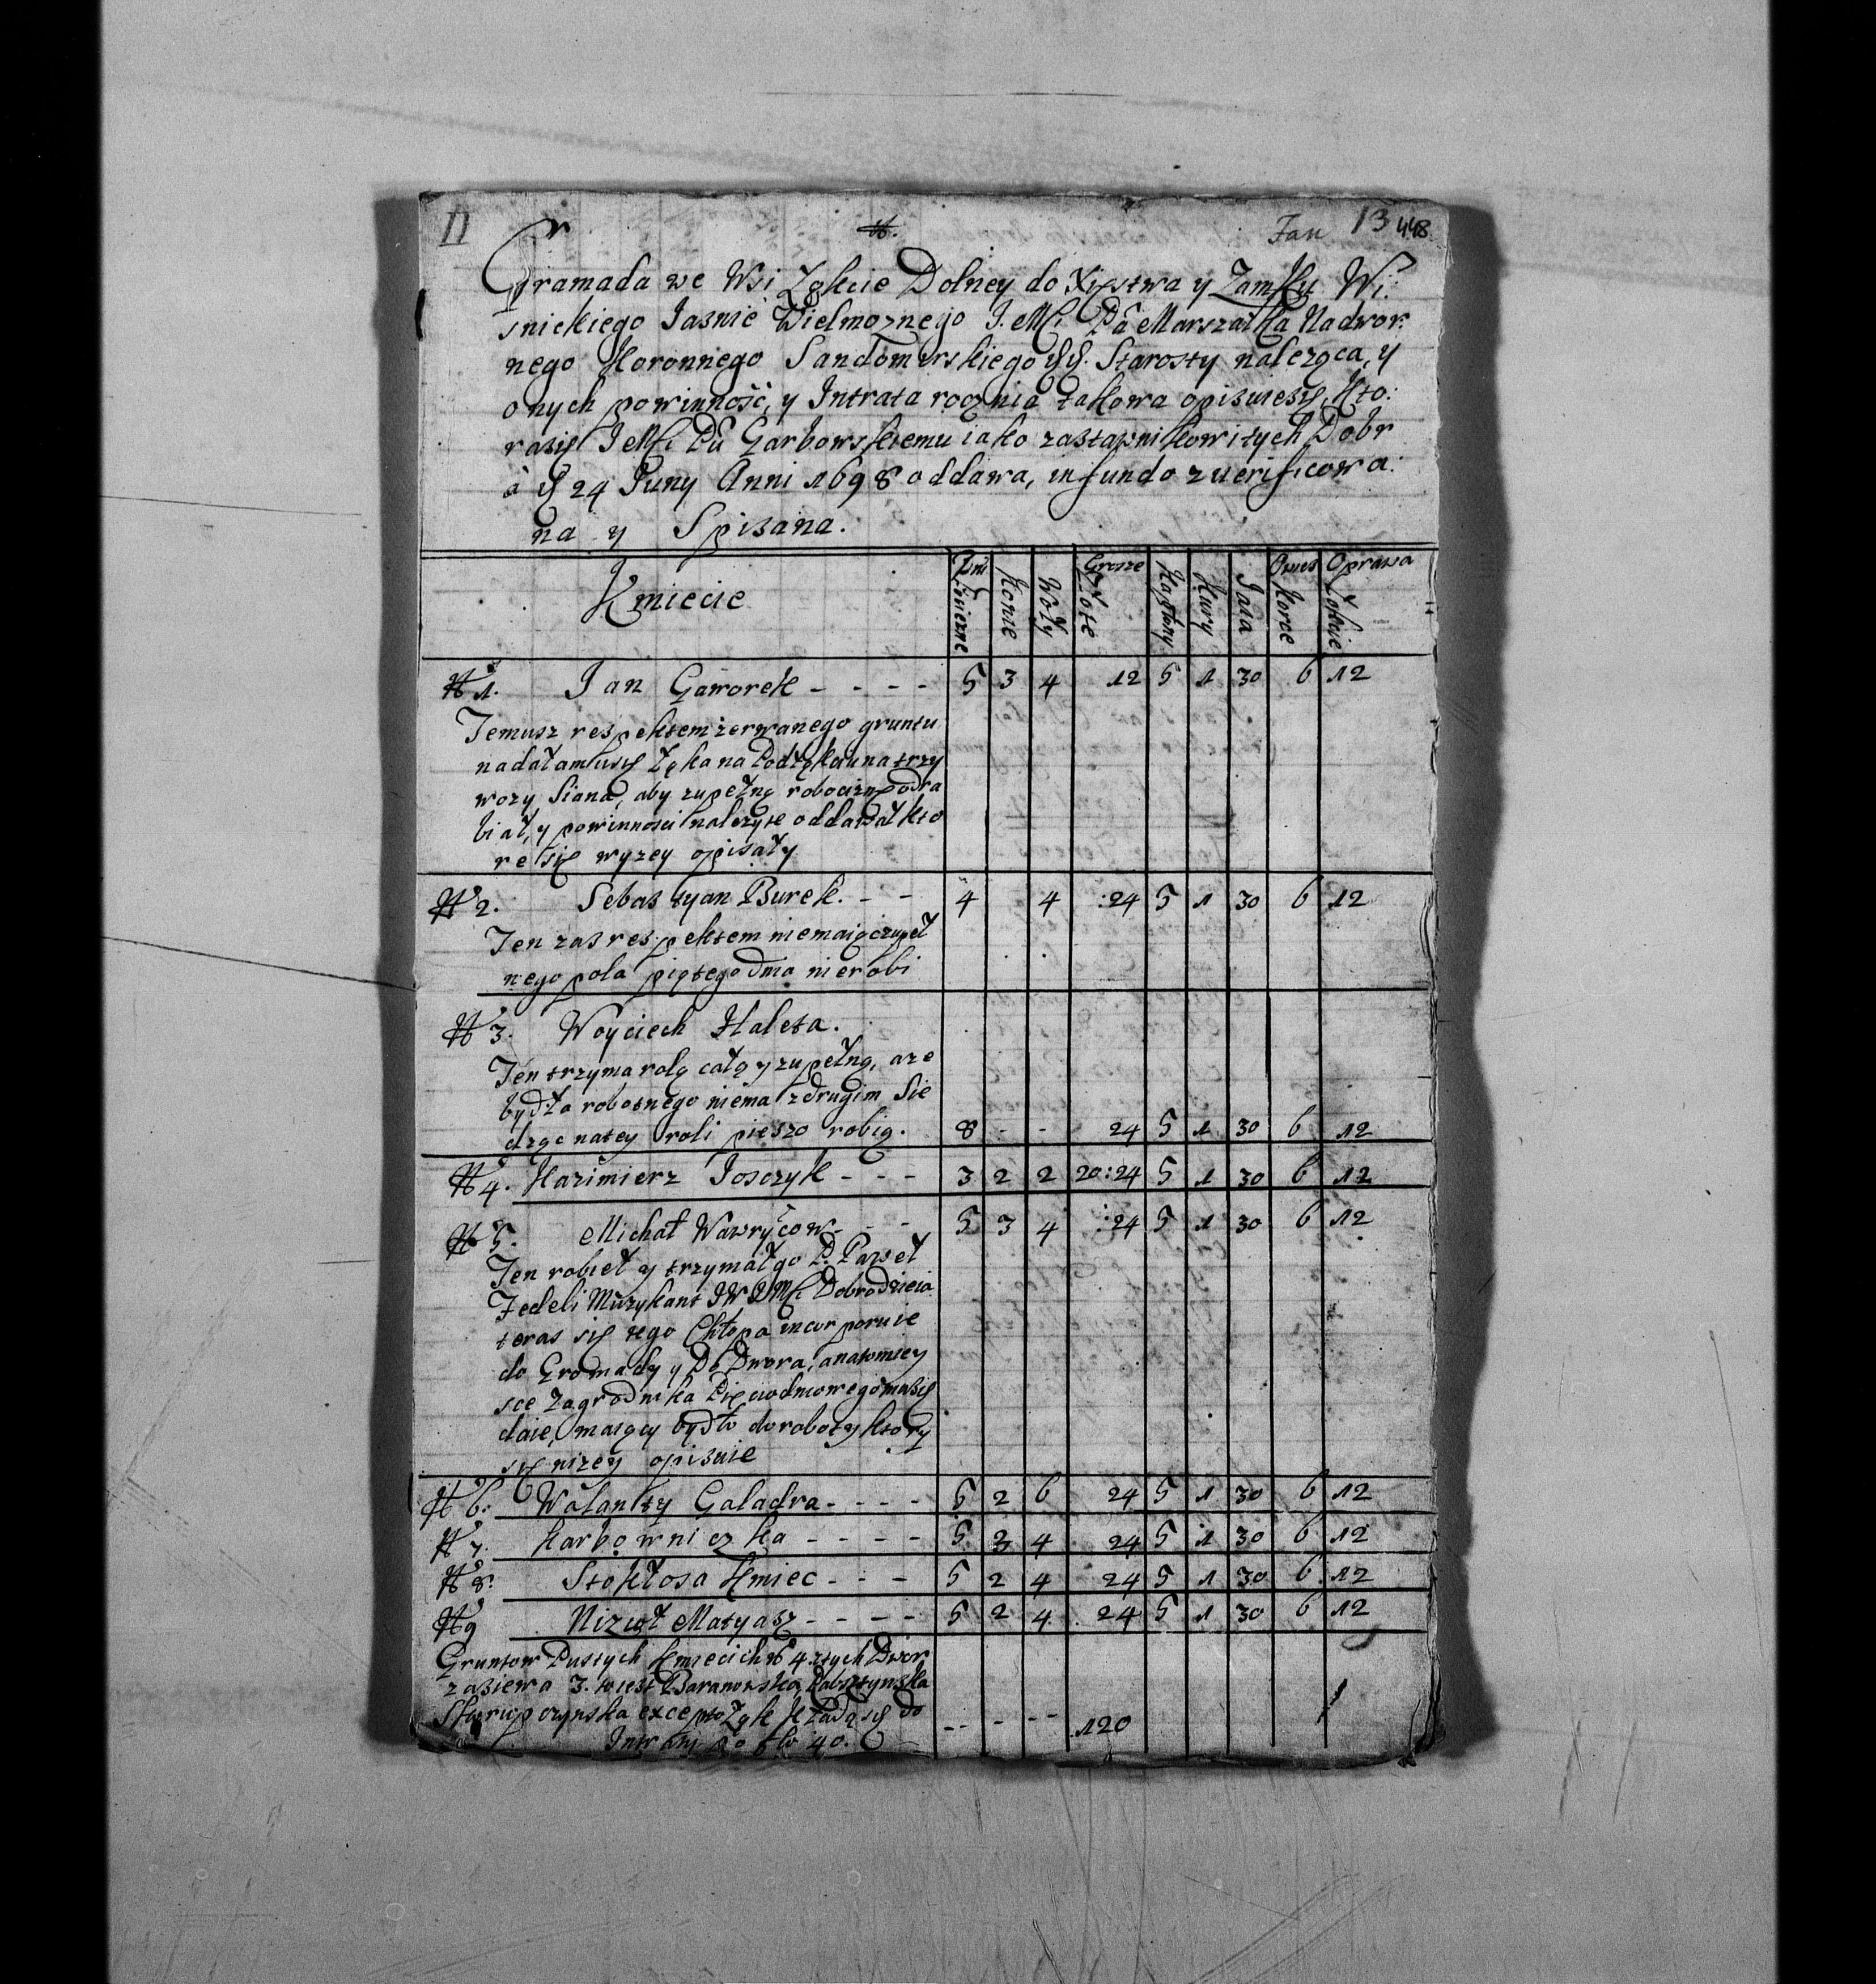 II
Jan 13 448
Gramada we Wsi Łąkcie Dolney do Xięstwa y Zamku Wi:
snickiego Jasnie Wielmoznego J. Mći Pã Marszałka Nadwor:
nego Koronnego Sandomirskiego Starosty naleząca, y
onych powinność, y Intrata rocznia takowa opisuiesię, Kto:
rasię JeMći Pũ Garbowskiemu iako zastawnikowi tych Dobr
à 24 Juny Anni 1698 oddawa, in fundo zuerificowa:
na y Spisana.
Kmiecie
Dni Konie Woły Grosze Złote Kapłony Kury Jaia Owies Korce Oprawa Łokcie
N 1. Jan Gaworek - - - - 5 3 4 12 5 1 30 6 12
Temusz respektem zerwanego gruntu
nadał Łąka na Podłąkau na trzy
wozy Siana, aby zupełną robociznę odra
biał, y powinnosci nalezyte oddawał kto
re się wyzey opisały
N 2. Sebastyan Burek. - - 4 4 :24 5 1 30 6 12
Ten zas respektem niemaiąc zupeł
nego pola piątego dnia nierobi
N 3. Woyciech Haleta.
Ten trzyma rolą całą y zupełną, aze
bydła robotnego niema z drugim Sie
dząc natey roli pieszo robią. 8 - - 24 5 1 30 6 12
N 4. Kazimierz Joszczyk - - - 3 2 2 20:24 5 1 30 6 12
N 5. Michał Wawrycow - - - 5 3 4 :24 5 1 30 6 12
Ten robieł y trzymał go P. Paweł
Fedeli Muzykant JWJMći Dobrodzieia
teras się tego Chłopa incorporuie
do Gromady y Do Dwora, anatomiey
sce Zagrodnika Pięciodniowego masię
daie, maiący bydło do roboty ktory
się nizey opisuie
N 6: Walanty Galadra - - - - 5 2 6 24 5 1 30 6 12
N 7. Karbowniczka - - - - 5 3 4 24 5 1 30 6 12
N 8. Stokłosa Kmiec - - - 5 2 4 24 5 1 30 6 12
N 9 Nizioł Matyasz - - - - 5 2 4 24 5 1 30 6 12
Gruntow Pustych Kmiecich 4 ztych Dwor
zasiewa 3. to iest Baranowska,
Skurupczynska excepto Łąk kładą się do
Intraty po fło 40. - - - - - 120